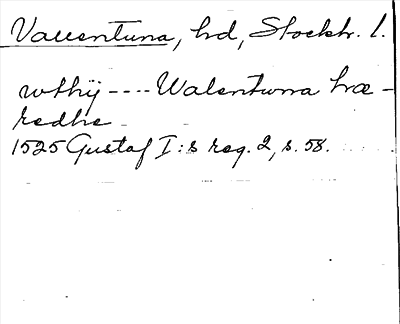 Vallentuna, hd, Stockh. l.
wthÿ ---- Walentwna hæ-
redhe
1525 Gustaf I:s reg. 2, s. 58.